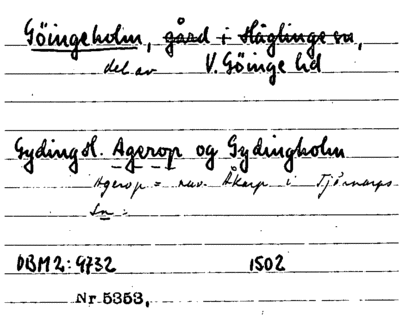 Göingeholm, gård i Häglinge sn,
del av V. Göinge hd
Gydingh. Agerop og Gydingholm
Agerop = nuv. Åkarp i Tjörnarps
sn.
DBM2: 9732 1502
Nr 5353,